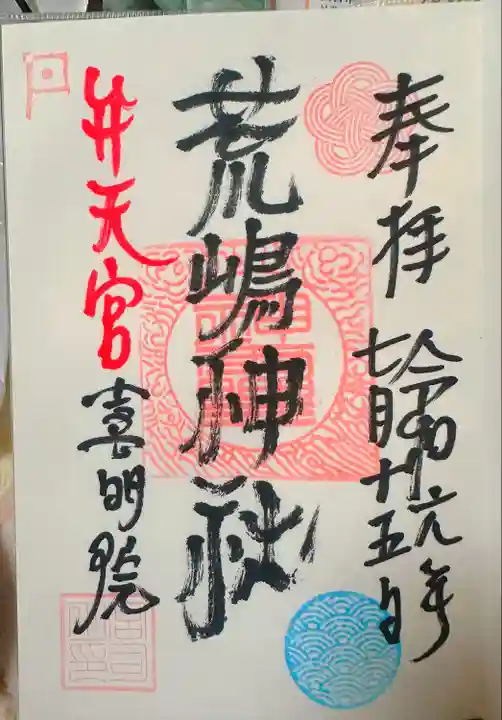 奉拝
令和元年
七月十五日
荒嶋神社
弁天宮
喜明院